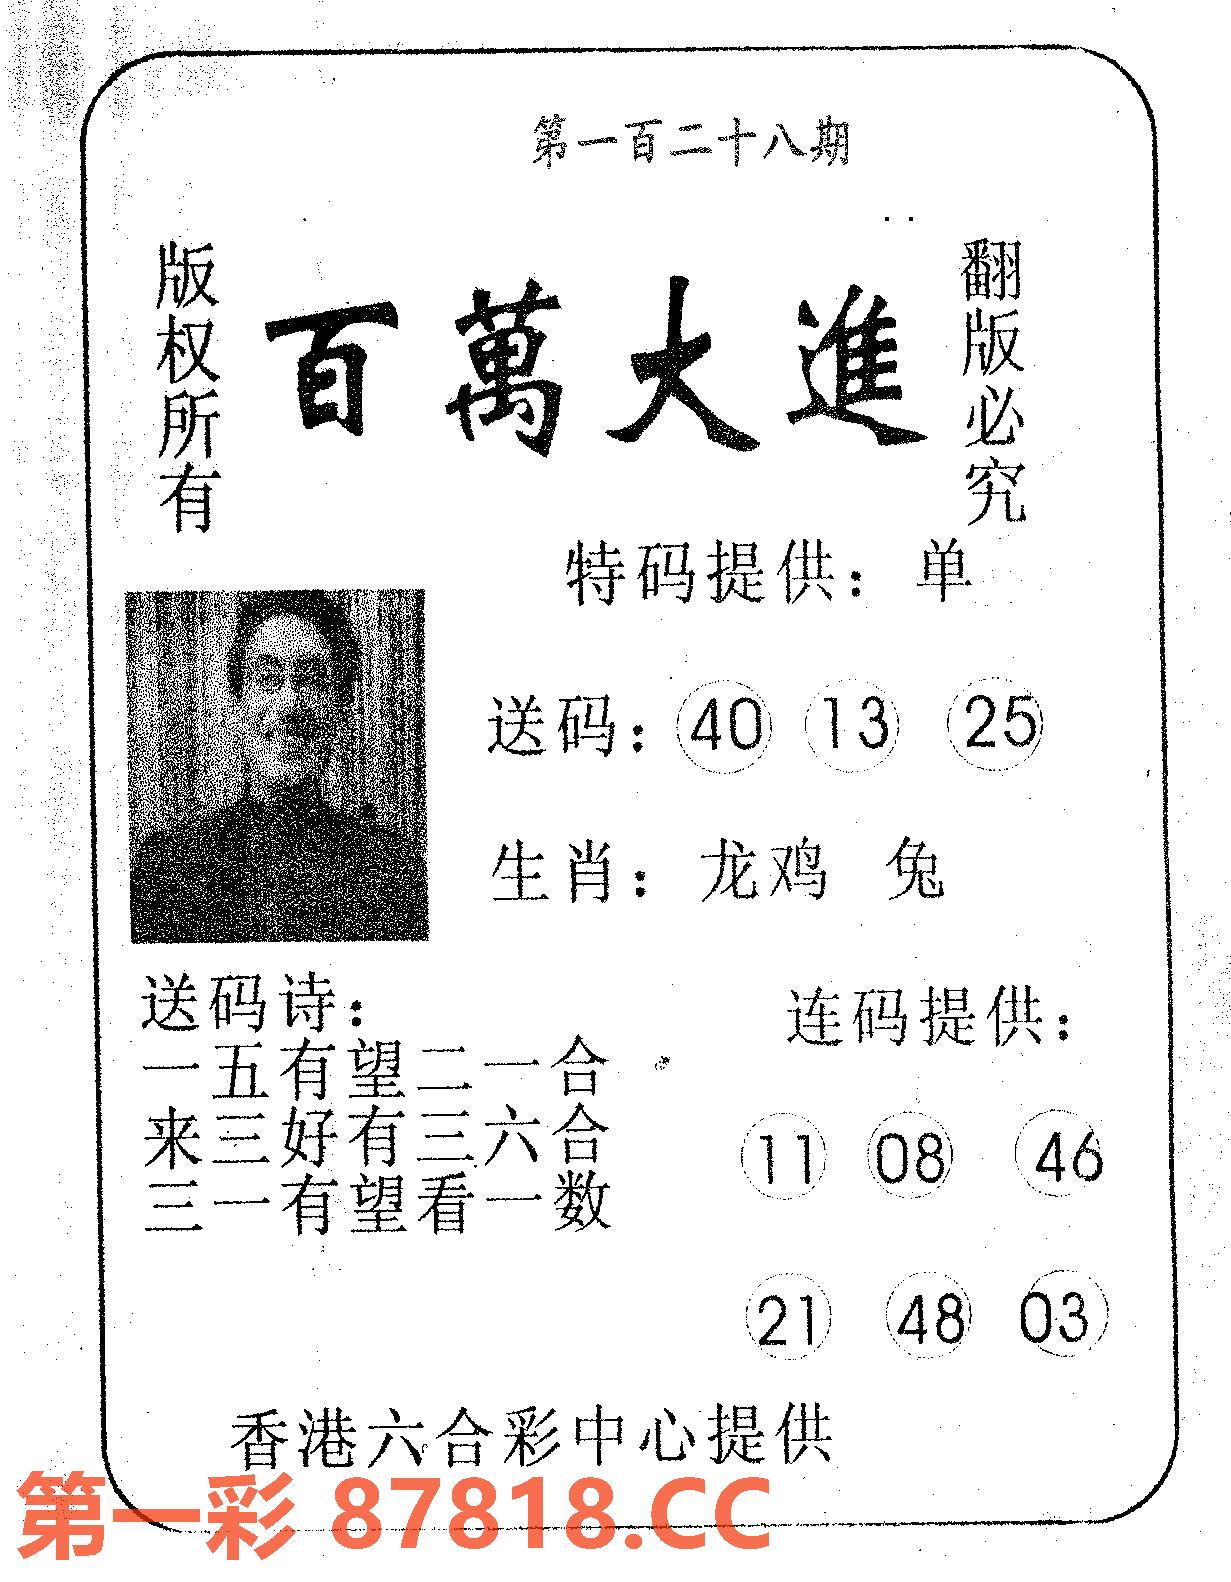 第一百二十八期
版权所有
百萬大進
翻版必究
特码提供：单
送码：40 13 25
生肖：龙鸡 兔
送码诗：
一五有望二一合
来三好有三六合
三一有望看一数
连码提供：
11 08 46
21 48 03
香港六合彩中心提供
第一彩 87818.CC